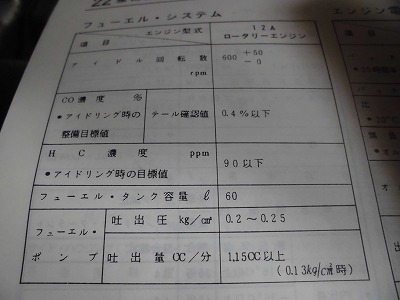 フューエル・システム
エンジン型式
項目
12A
ロータリーエンジン
アイドル回転数
rpm
600 +50
－0
CO濃度 %
●アイドリング時の
整備目標値
テール確認値
0.4%以下
HC濃度 ppm
●アイドリング時の目標値
90以下
フューエル・タンク容量 ℓ
60
フューエル・
ポンプ
吐出圧 kg/cm²
0.2～0.25
吐出量CC/分
1,150CC以上
(0.13kg/cm²時)
エンジン電